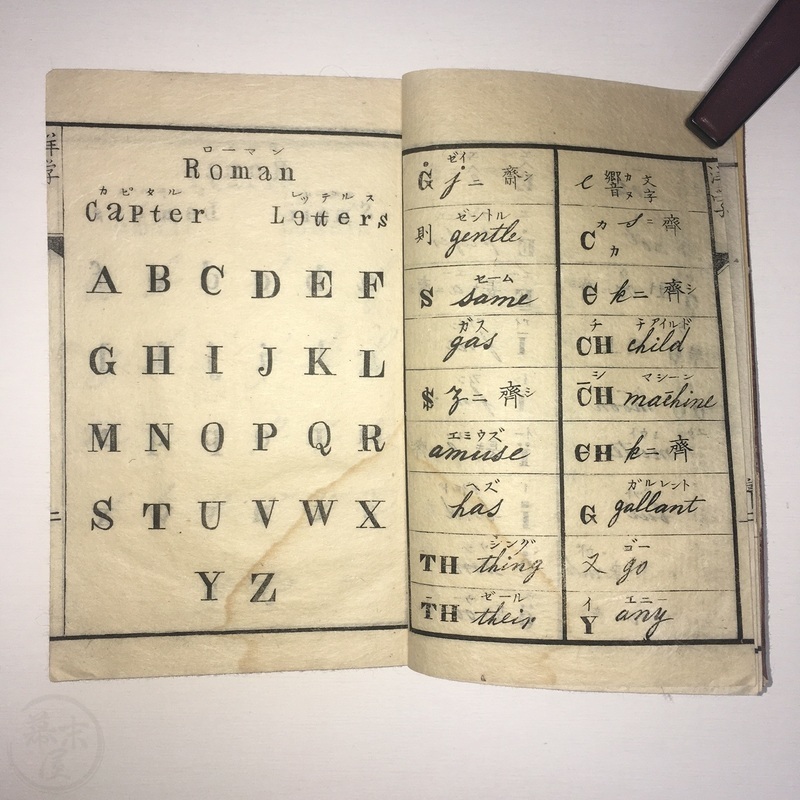 洋学
ローマン
Roman
カピタル レッテルス
Capter Letters
A B C D E F
G H I J K L
M N O P Q R
S T U V W X
Y Z
e 響カヌ文字
C カ カ s ニ 齊
C k ニ 齊シ
チ チアイルド
CH child
シ マシーン
CH machine
CH k ニ 齊
ガルレント
G gallant
ゴー
又 go
イ エニー
Y any
ゼイ
Ġ j ニ 齊シ
ゼントル
則 gentle
セーム
S same
ガス
gas
S z ニ 齊シ
エミウズ
amuse
ヘズ
has
シング
TH thing
ゼール
TH their
洋学
幕末屋